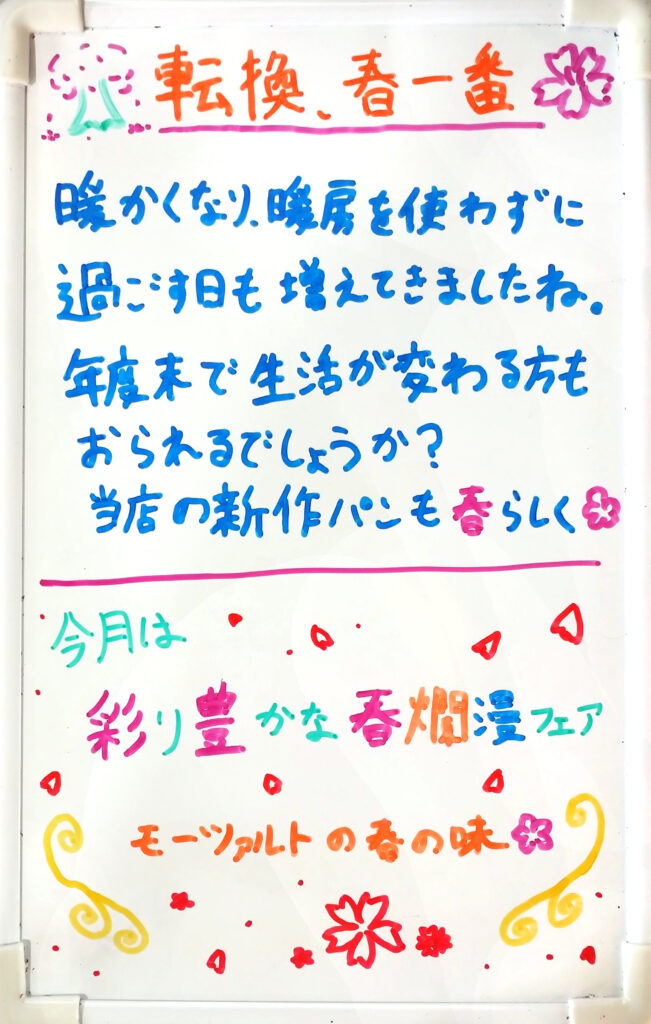 転換、春一番
暖かくなり、暖房を使わずに
過ごす日も増えてきましたね。
年度末で生活が変わる方も
おられるでしょうか?
当店の新作パンも春らしく
今月は
彩り豊かな春爛漫フェア
モーツァルトの春の味